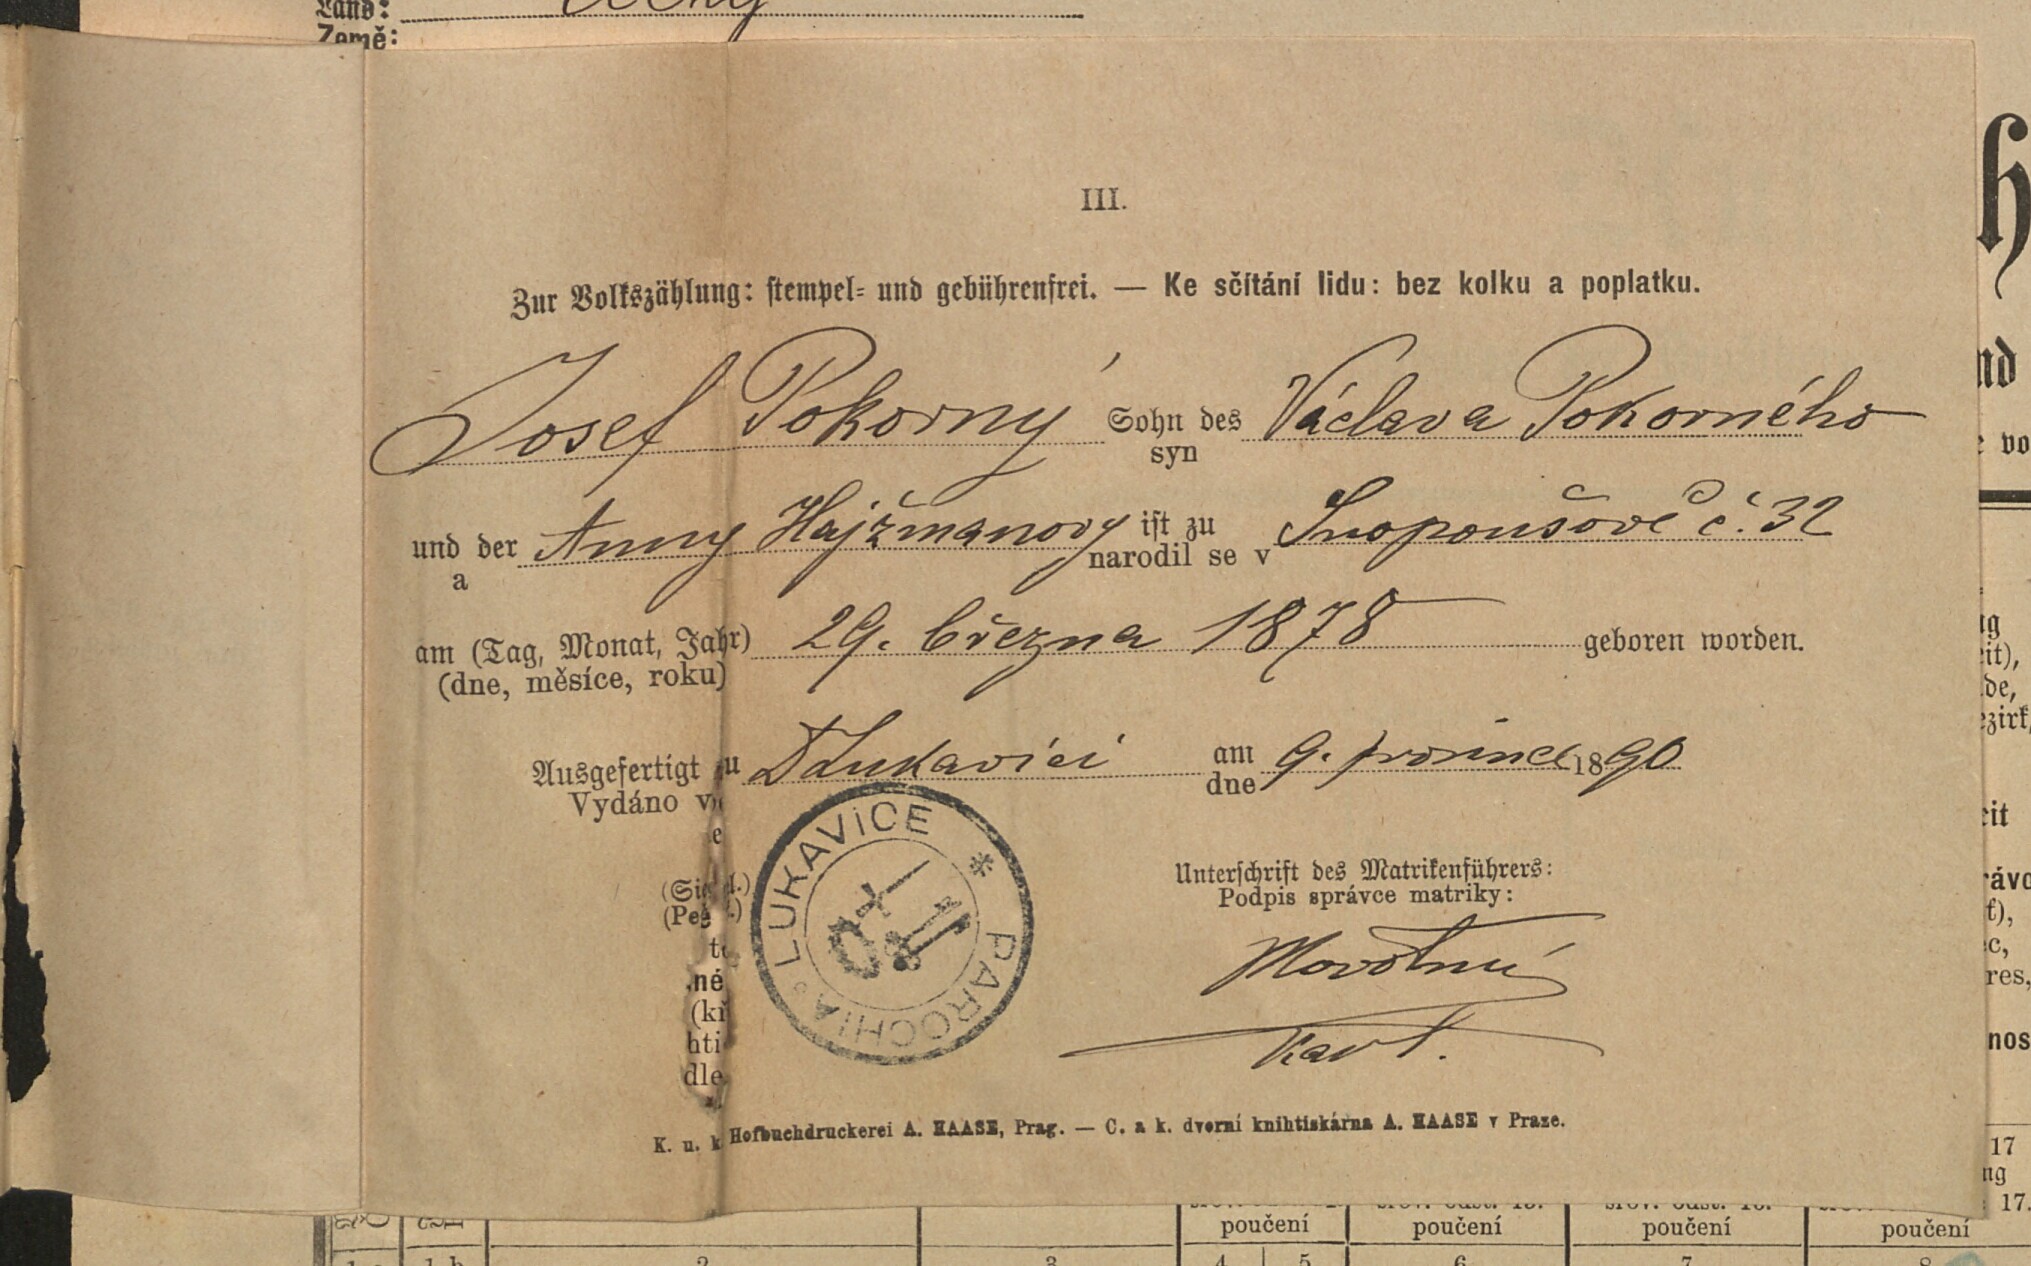 Land:
Země:
III.
Zur Volkszählung: stempel- und gebührenfrei. — Ke sčítání lidu: bez kolku a poplatku.
Josef Pokorný Sohn des Václava Pokorného
syn
und der Anny Hajžmanovy ist zu Snopoušově č. 32
a narodil se v
am (Tag, Monat, Jahr) 29. března 1878 geboren worden.
(dne, měsíce, roku)
Ausgefertigt zu D Lukavici am 9. prosince 1890
Vydáno v dne
LUKAVICE * PAROCHIA
Unterschrift des Matrikenführers:
Podpis správce matriky:
Novotný
K. u. k. Hofbuchdruckerei A. HAASE, Prag. — C. a k. dvorní knihtiskárna A. HAASE v Praze.
poučení poučení poučení poučení
2 3 4 5 6 7 8